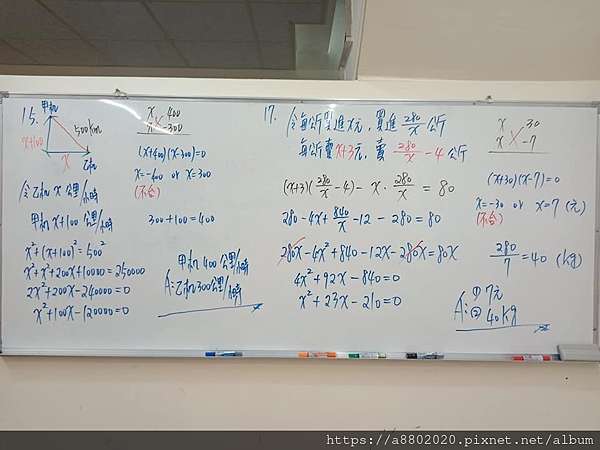 15.
甲机
500km
x+100
x
乙机
令乙机 x 公里/小時
甲机 x+100 公里/小時
x²+(x+100)²=500²
x²+x²+200x+10000=250000
2x²+200x-240000=0
x²+100x-120000=0
x 400
x -300
(x+400)(x-300)=0
x=-400 or x=300
(不合)
300+100=400
甲机 400 公里/小時
A:乙机 300 公里/小時
17.
令每公斤買進x元，買進 280/x 公斤
每公斤賣x+3元，賣 280/x -4 公斤
(x+3)(280/x -4)- x·280/x = 80
280-4x+840/x-12-280=80
280x-4x²+840-12x-280x=80x
4x²+92x-840=0
x²+23x-210=0
x 30
x -7
(x+30)(x-7)=0
x=-30 or x=7 (元)
(不合)
280/7=40 (kg)
A:① 7元
② 40kg
https://a8802020.pixnet.net/album